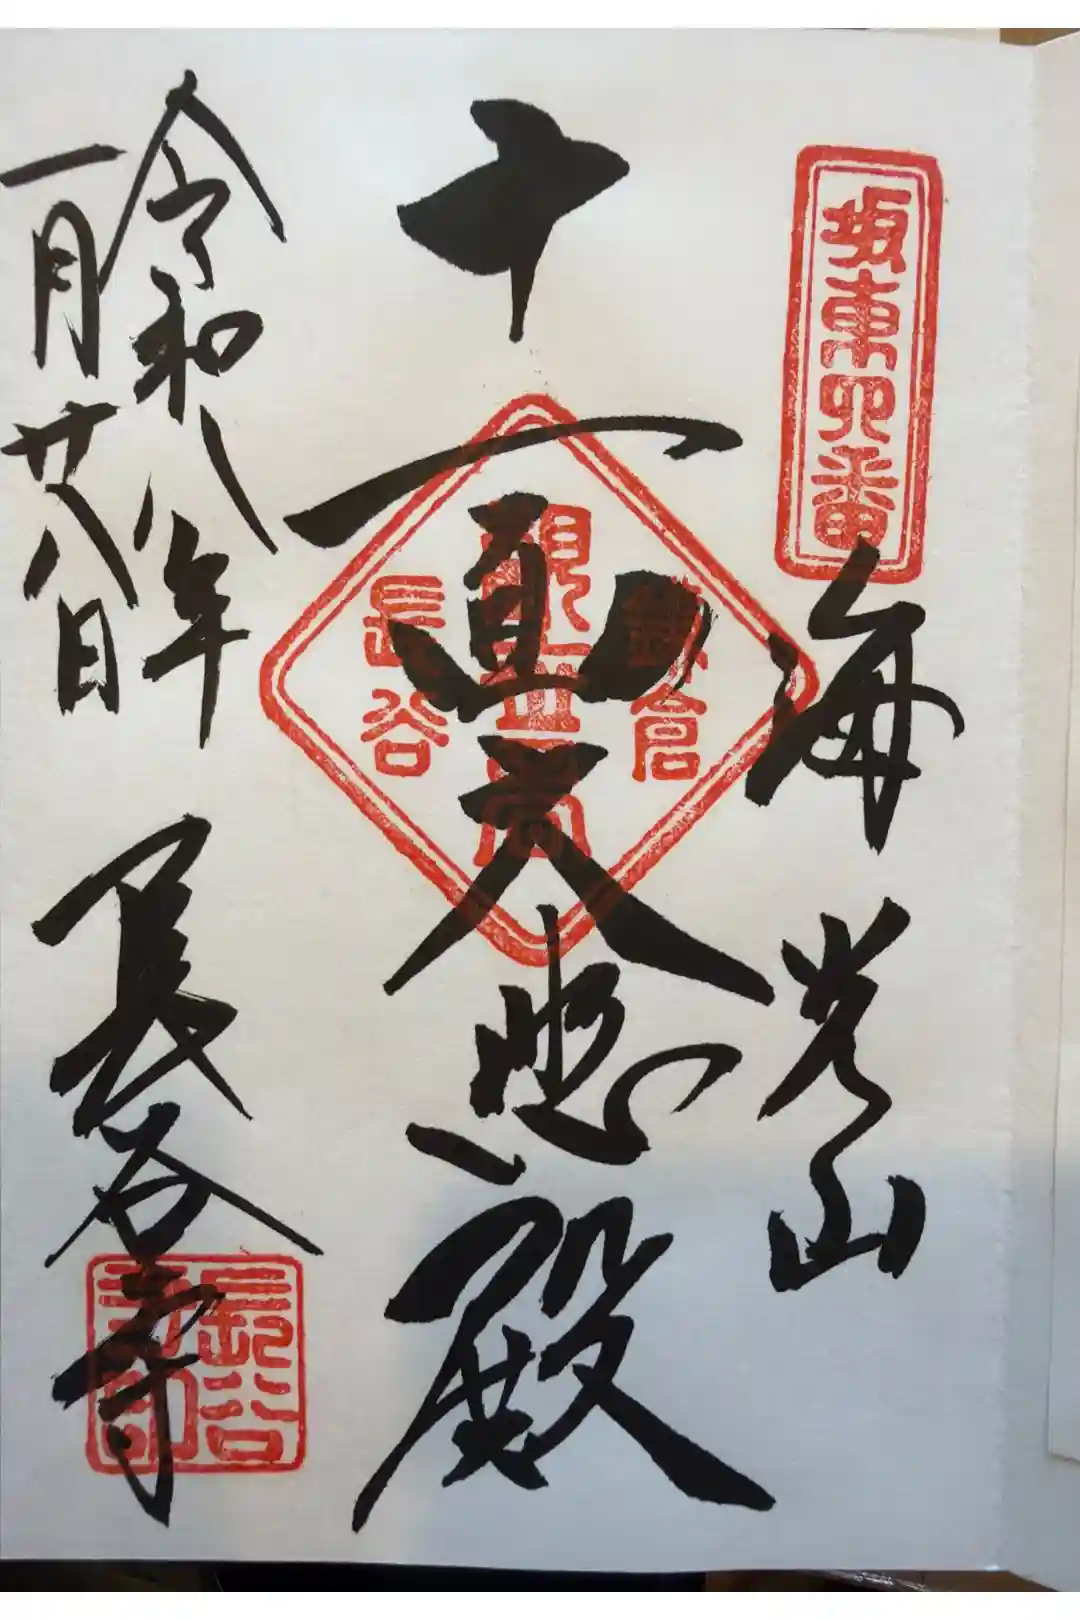 坂東四番
海光山
十一面大悲殿
鎌倉
長谷
令和八年
一月廿八日
長谷寺
長谷寺印